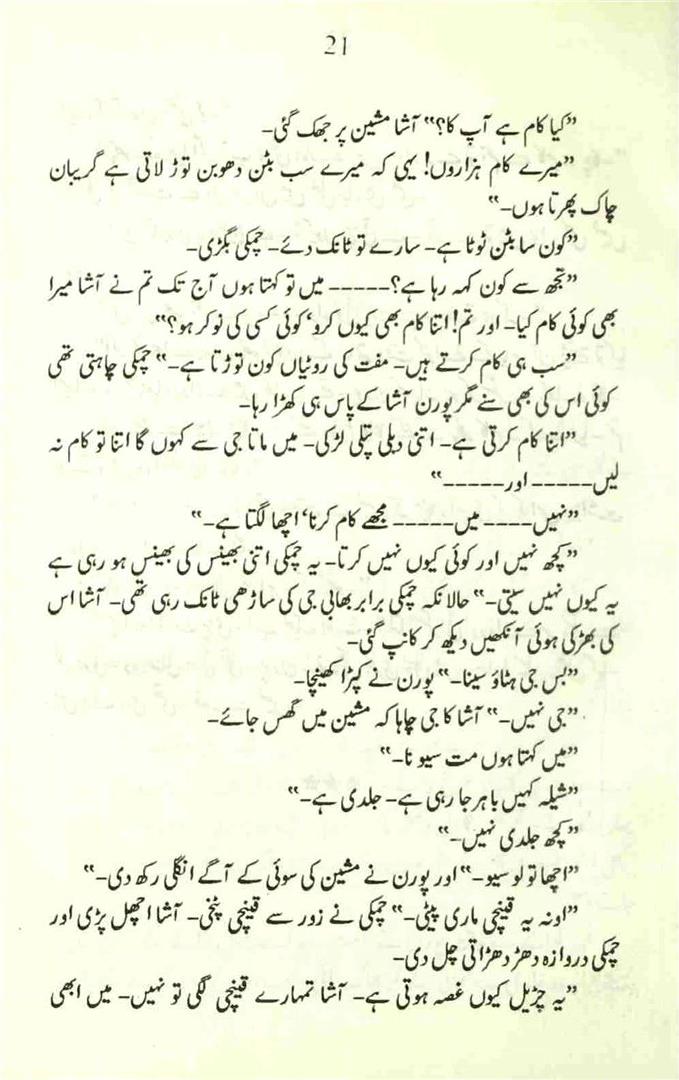 21
”کیا کام ہے آپ کا؟“ آشا مشین پر جھک گئی-
”میرے کام ہزاروں! یہی کہ میرے سب بٹن دھوبن توڑ لاتی ہے گریبان
چاک پھرتا ہوں-“
”کون سا بٹن ٹوٹا ہے- سارے تو ٹانک دئے- چمکی بگڑی-
”تجھ سے کون کہہ رہا ہے؟----- میں تو کہتا ہوں آج تک تم نے آشا میرا
بھی کوئی کام کیا- اور تم! اتنا کام بھی کیوں کرو‘ کوئی کسی کی نوکر ہو؟“
”سب ہی کام کرتے ہیں- مفت کی روٹیاں کون توڑتا ہے-“ چمکی چاہتی تھی
کوئی اس کی بھی سنے مگر پورن آشا کے پاس ہی کھڑا رہا-
”اتنا کام کرتی ہے- اتنی دبلی پتلی لڑکی- میں ماتا جی سے کہوں گا اتنا تو کام نہ
لیں----- اور-----“
”نہیں---- میں----- مجھے کام کرنا‘ اچھا لگتا ہے-“
”کچھ نہیں اور کوئی کیوں نہیں کرتا- یہ چمکی اتنی بھینس کی بھینس ہو رہی ہے
یہ کیوں نہیں سیتی-“ حالانکہ چمکی برابر بھابی جی کی ساڑھی ٹانک رہی تھی- آشا اس
کی بھڑکی ہوئی آنکھیں دیکھ کر کانپ گئی-
”بس جی ہٹاؤ سینا-“ پورن نے کپڑا کھینچا-
”جی نہیں-“ آشا کا جی چاہا کہ مشین میں گھس جائے-
”میں کہتا ہوں مت سیو نا-“
”شیلہ کہیں باہر جا رہی ہے- جلدی ہے-“
”کچھ جلدی نہیں-“
”اچھا تو لو سیو-“ اور پورن نے مشین کی سوئی کے آگے انگلی رکھ دی-“
”اونہ یہ قینچی ماری پیٹی-“ چمکی نے زور سے قینچی پٹخی- آشا اچھل پڑی اور
چمکی دروازہ دھڑ دھڑاتی چل دی-
”یہ چڑیل کیوں غصہ ہوتی ہے- آشا تمہارے قینچی لگی تو نہیں- میں ابھی